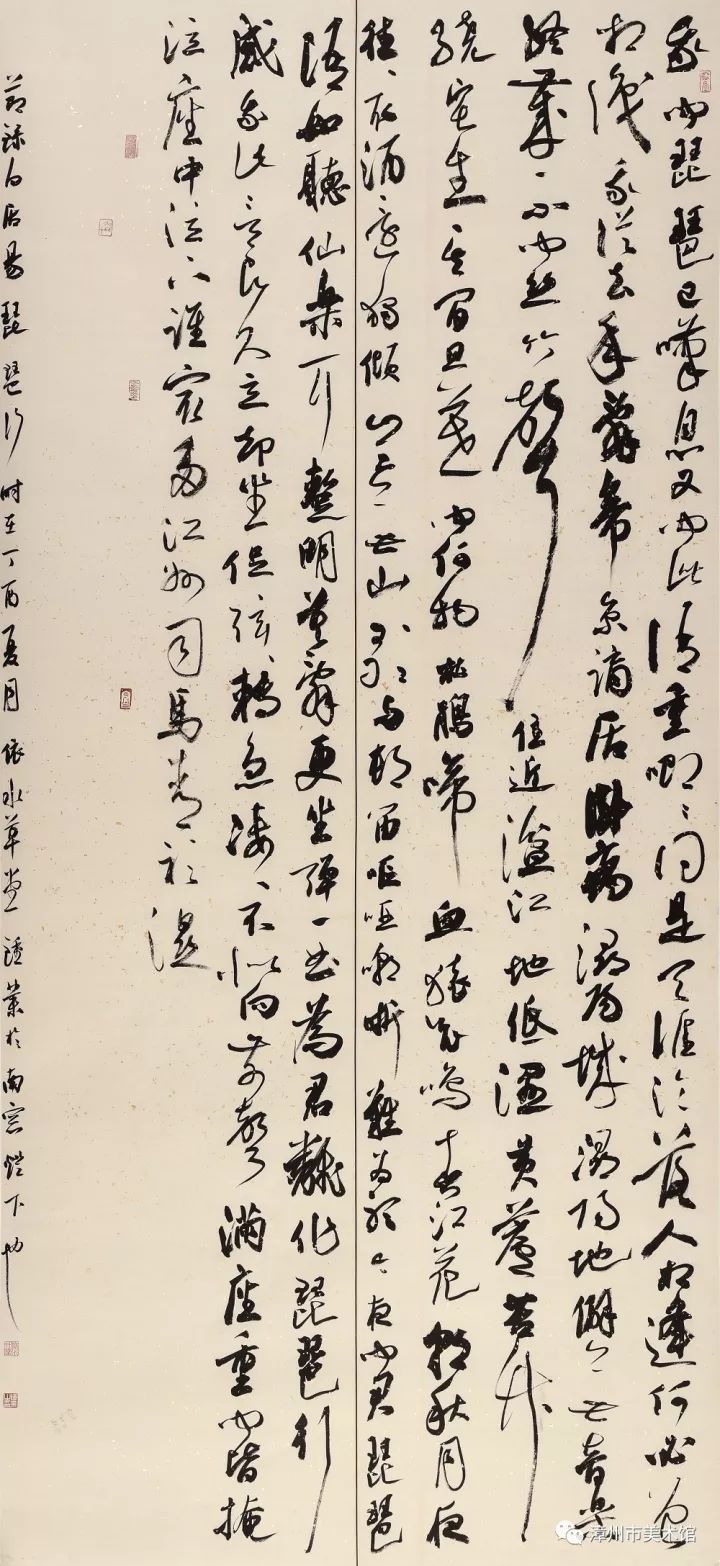 我闻琵琶已嘆息又闻此语重唧〻同是天涯沦落人相逢何必曾
相識我從去年辭帝京謫居臥病潯陽城潯陽地僻无音樂
終歲不闻絲竹聲住近湓江地低湿黄蘆苦竹
繞宅生其間旦暮闻何物杜鵑啼血猿哀鳴春江花朝秋月夜
往〻取酒還獨傾豈无山歌与村笛嘔啞嘲哳難为聽今夜闻君琵琶
語如聽仙樂耳暫明莫辭更坐彈一曲為君翻作琵琶行
感我此言良久立却坐促弦〻轉急凄〻不似向前聲滿座重闻皆掩
泣座中泣下谁最多江州司馬青衫濕
節錄白居易琵琶行时在丁酉夏月依水草堂業於南窗燈下也
漳州市美术馆